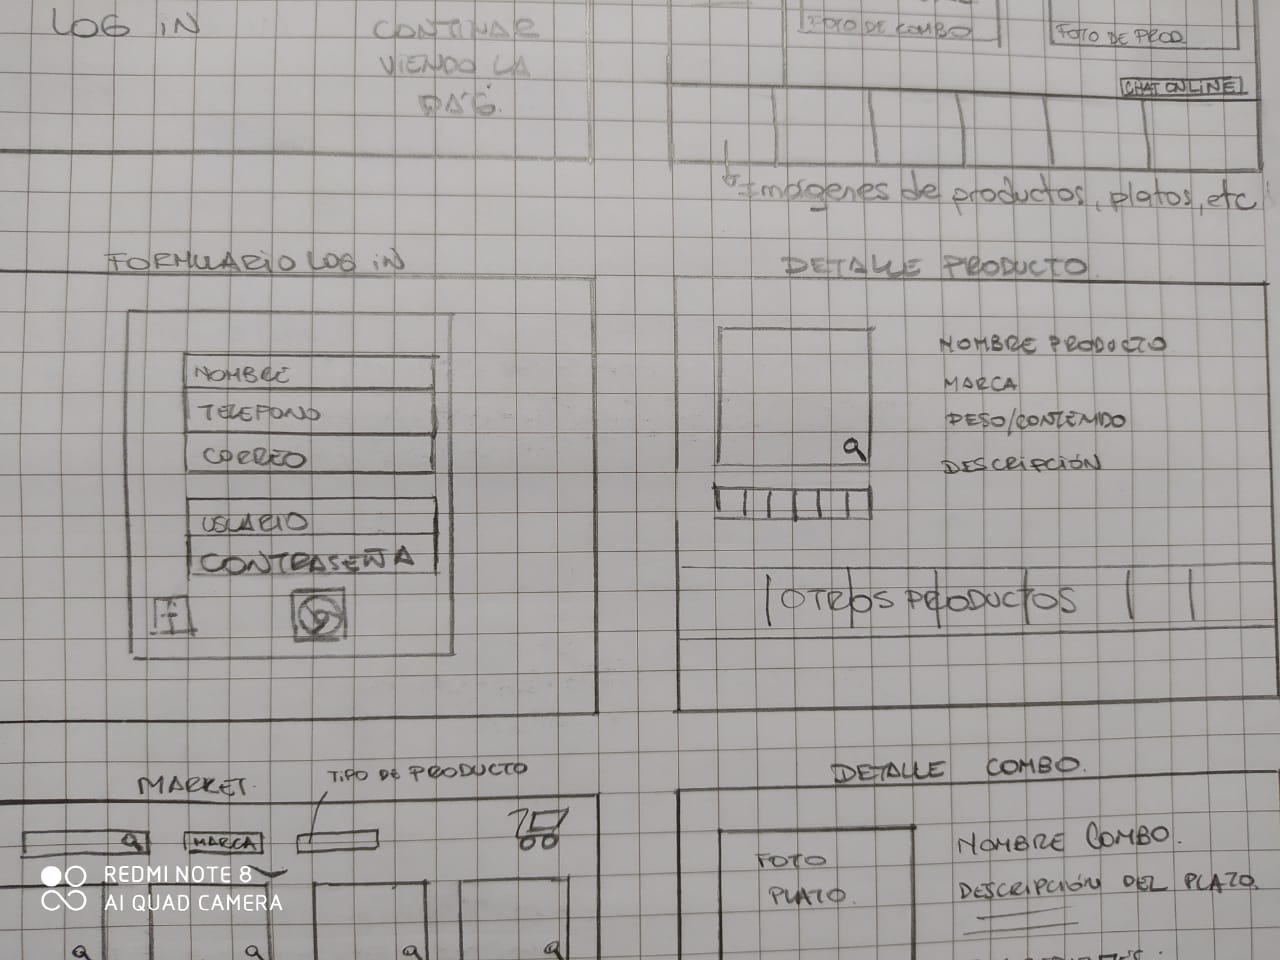 LOG IN
CONTINAR
VIENDO LA
PÁG.
FOTO DE COMBO
FOTO DE PROD.
CHAT ONLINE
Imágenes de productos, platos, etc
FORMULARIO LOG IN
NOMBRE
TELEFONO
CORREO
USUARIO
CONTRASEÑA
f
DETALLE PRODUCTO
NOMBRE PRODUCTO
MARCA
PESO/CONTENIDO
DESCRIPCIÓN
OTROS PRODUCTOS
MARKET.
TIPO DE PRODUCTO
MARCA
DETALLE COMBO.
FOTO
PLATO.
NOMBRE COMBO.
DESCRIPCIÓN DEL PLATO.
REDMI NOTE 8
AI QUAD CAMERA